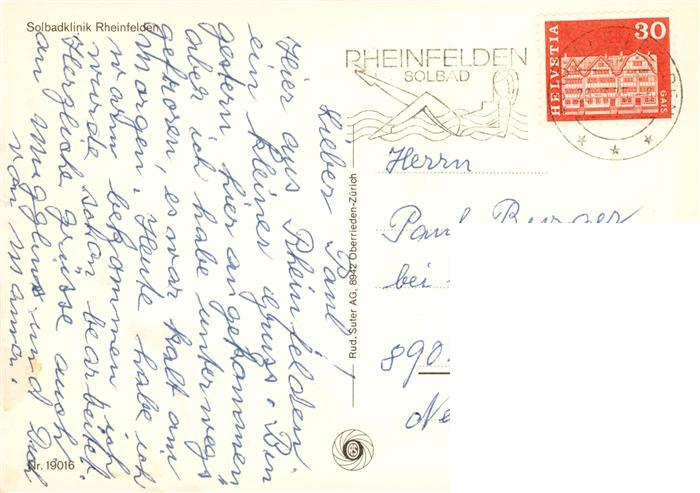 Solbadklinik Rheinfelden
Lieber Paul,
Hier aus Rheinfelden
ein kleiner Gruss. Bin
gestern hier angekommen
aber ich habe unterwegs
gefroren, es war kalt am
Morgen. Heute habe ich
warm bekommen ich
wurde schon bearbeitet.
Herzliche Grüsse auch
an und Dich
von Mama.
Nr. 19016
Rud. Suter AG, 8942 Oberrieden-Zürich
RHEINFELDEN
SOLBAD
HELVETIA
30
GAIS
Herrn
Paul
bei
890